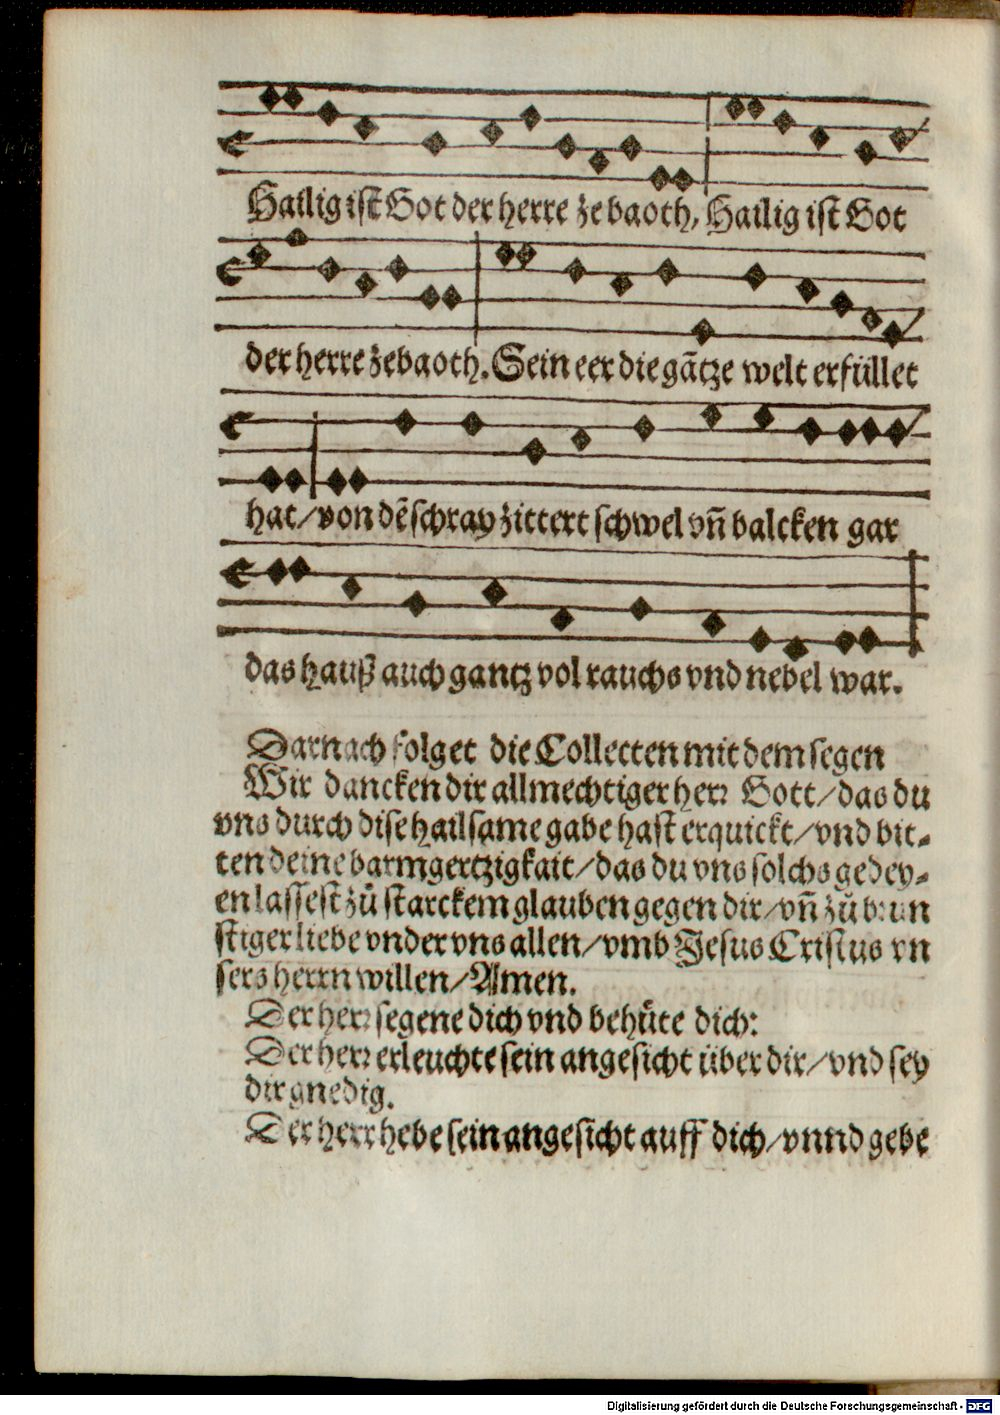 Hailig ist Got der herre zebaoth, Hailig ist Got
der herre zebaoth. Sein eer die gãtze welt erfüllet
hat/ von dẽ schray zittert schwel vñ balcken gar
das hauß auch gantz vol rauchs vnd nebel war.
Darnach folget die Collecten mit dem segen
Wir dancken dir allmechtiger herr Gott/ das du
vns durch dise hailsame gabe hast erquickt/ vnd bit-
ten deine barmgertzigkait/ das du vns solchs gedey-
en lassest zů starckem glauben gegen dir/ vñ zů brun
stiger liebe vnder vns allen/ vmb Jesus Cristus vn
sers herrn willen/ Amen.
Der herr segene dich vnd behüte dich:
Der herr erleuchte sein angesicht über dir/ vnd sey
dir gnedig.
Der herr hebe sein angesicht auff dich/ vnnd gebe
Digitalisierung gefördert durch die Deutsche Forschungsgemeinschaft - DFG